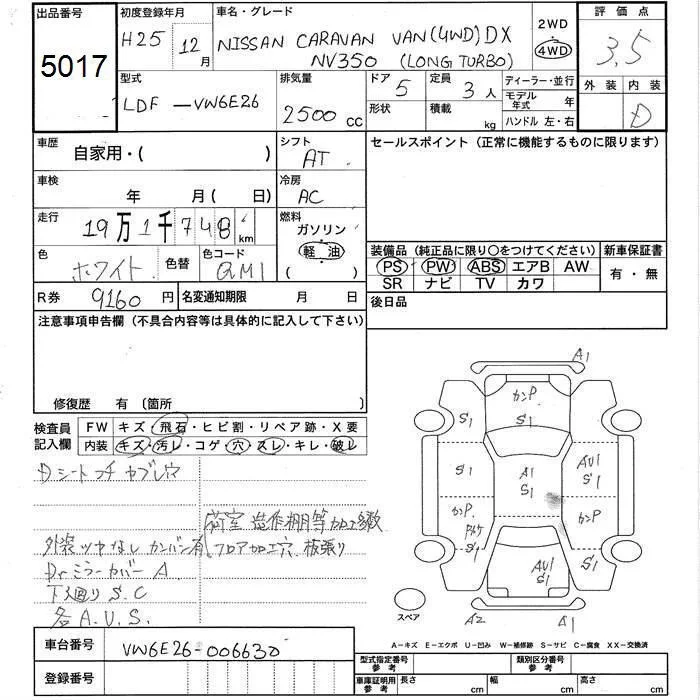 出品番号 初度登録年月 車名・グレード 2WD 評価点
5017 H25 12月 NISSAN CARAVAN VAN(4WD)DX 4WD 3,5
NV350 (LONG TURBO)
型式 排気量 ドア 定員 ディーラー・並行 外装 内装
LDF -VW6E26 2500CC 5 3人 モデル年式 年 D
形状 積載 kg ハンドル 左・右
車歴 自家用・( ) シフト AT セールスポイント(正常に機能するものに限ります)
車検 年 月( 日) 冷房 AC
走行 19万1千748km 燃料 ガソリン
軽油
( )
色 ホワイト 色替 色コード QM1
装備品(純正品に限り○をつけてください) 新車保証書
PS PW ABS エアB AW 有・無
SR ナビ TV カワ
R券 9160円 名変通知期限 月 日 後日品
注意事項申告欄(不具合内容等は具体的に記入して下さい)
修復歴 有(箇所 )
検査員記入欄 FW キズ・飛石・ヒビ割・リペア跡・X要
内装 キズ・汚レ・コゲ・穴・スレ・キレ・破レ
Dシート フチ ヤブレ穴
荷室 造作棚等加工多数
外装ツヤなし カンバン有 フロア加工穴、板張り
Drミラーカバー A
下廻り S.C
各A.U.S.
A1
カンP
S1 S1
S1 A1 S1 AU1 S1
カンP カンP
AU1 S1
S1 S1
スペア A2 A1
A-キズ E-エクボ U-凹み W-補修跡 S-サビ C-腐食 XX-交換済
車台番号 VW6E26-006630
登録番号
型式指定番号参考 類別区分番号参考
車庫証明用参考 長さ cm 幅 cm 高さ cm